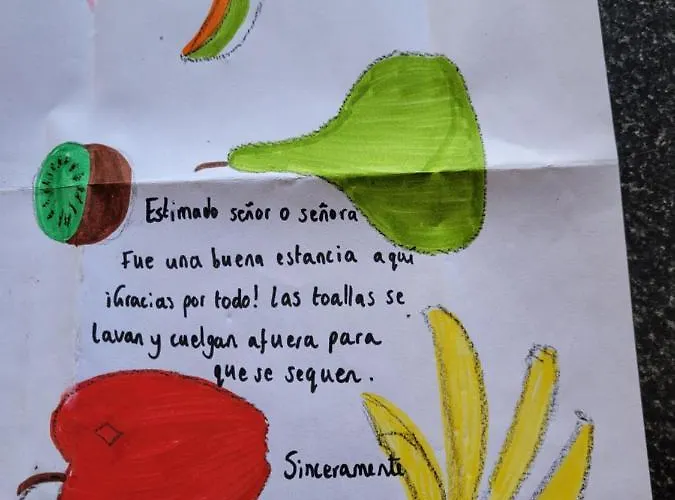 Estimado señor o señora
Fue una buena estancia aquí
¡Gracias por todo! Las toallas se
lavan y cuelgan afuera para
que se sequen.
Sinceramente